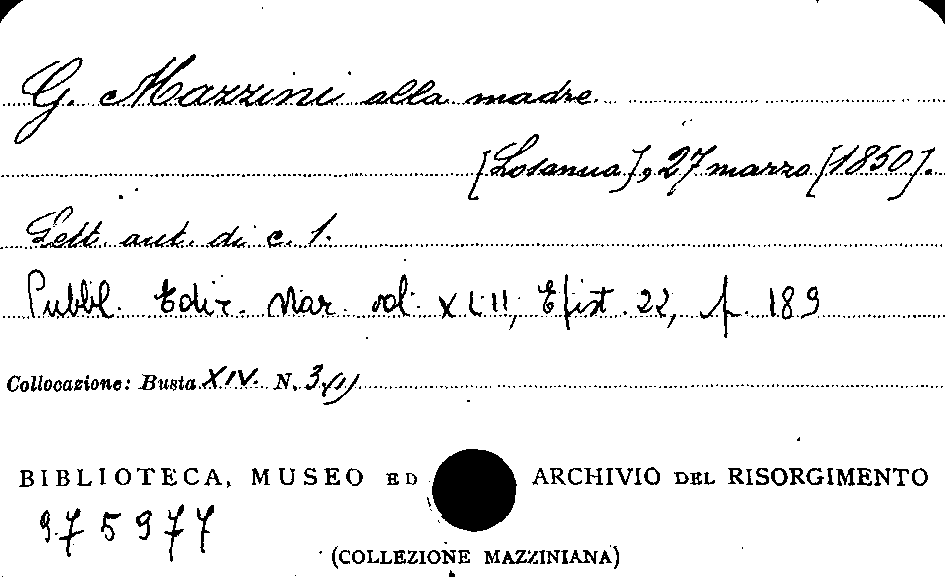 G. Mazzini alla madre.
[Losanna], 27 marzo [1850].
Lett. aut. di c. 1.
Pubbl. Ediz. Naz. vol. XLII, Epist. 22, p. 189
Collocazione: Busta XIV. N. 3
BIBLIOTECA, MUSEO ED ARCHIVIO DEL RISORGIMENTO
975977
(COLLEZIONE MAZZINIANA)